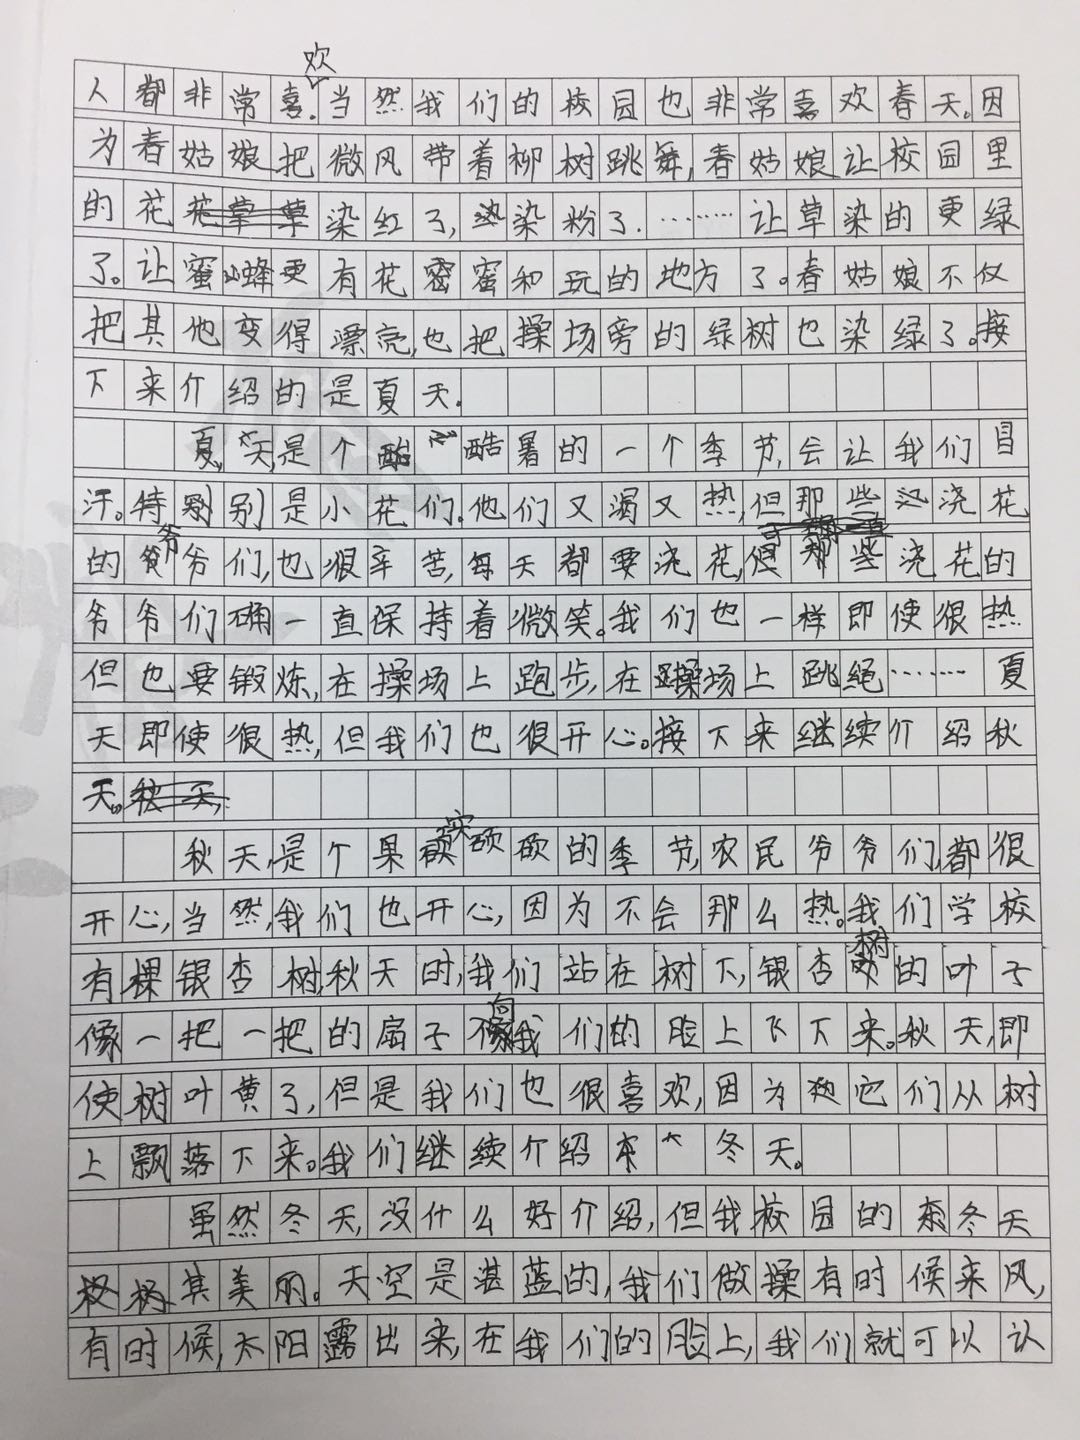 人都非常喜欢.当然我们的校园也非常喜欢春天。因
为春姑娘把微风带着柳树跳舞,春姑娘让校园里
的花染红了,染粉了.……让草染的更绿
了。让蜜蜂更有花密蜜和玩的地方了。春姑娘不仅
把其他变得漂亮,也把操场旁的绿树也染绿了。接
下来介绍的是夏天.
夏天,是个酷暑的一个季节,会让我们冒
汗。特别别是小花们.他们又渴又热,但那些浇花
的爷爷们,也很辛苦,每天都要浇花,但那些浇花的
爷爷们确一直保持着微笑。我们也一样即使很热
但也要锻炼,在操场上跑步,在操场上跳绳……夏
天即使很热,但我们也很开心。接下来继续介绍秋
天。
秋天,是个果实硕硕的季节,农民爷爷们,都很
开心,当然,我们也开心,因为不会那么热。我们学校
有棵银杏树,秋天时,我们站在树下,银杏树的叶子
像一把一把的扇子向我们的脸上飞下来。秋天,即
使树叶黄了,但是我们也很喜欢,因为它们从树
上飘落下来。我们继续介绍冬天。
虽然冬天,没什么好介绍,但我校园的冬天
极其美丽。天空是湛蓝的,我们做操有时候来风,
有时候,太阳露出来,在我们的脸上,我们就可以认